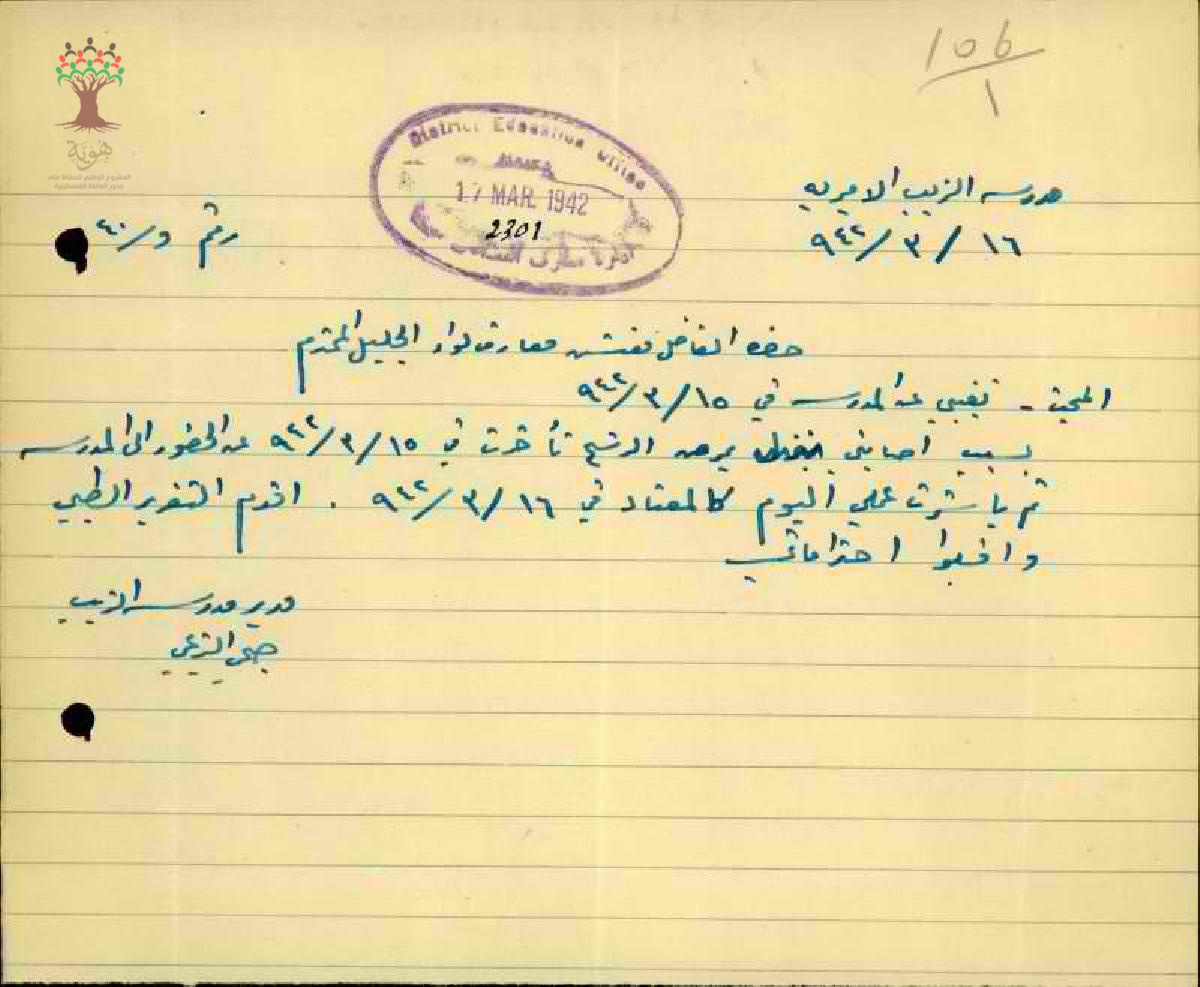 106
1
هوية
المشروع الوطني للحفاظ على
جذور العائلة الفلسطينية
District Education Office
HAIFA
17 MAR. 1942
2301
مدرسه الزيب الاميريه
١٦ / ٣ / ٩٤٢
رقم و/٤٠
حضرة الفاضل مفتش معارف لواء الجليل المحترم
المبحث - تغيبي عن المدرسه في ١٥ / ٣ / ٩٤٢
بسبب اصابتي بمرض الرشح تأخرت في ١٥ / ٣ / ٩٤٢ عن الحضور الى المدرسه
ثم باشرت عملي اليوم كالمعتاد في ١٦ / ٣ / ٩٤٢ . اقدم التقرير الطبي
واقبلوا احتراماتي
مدير مدرسه الزيب